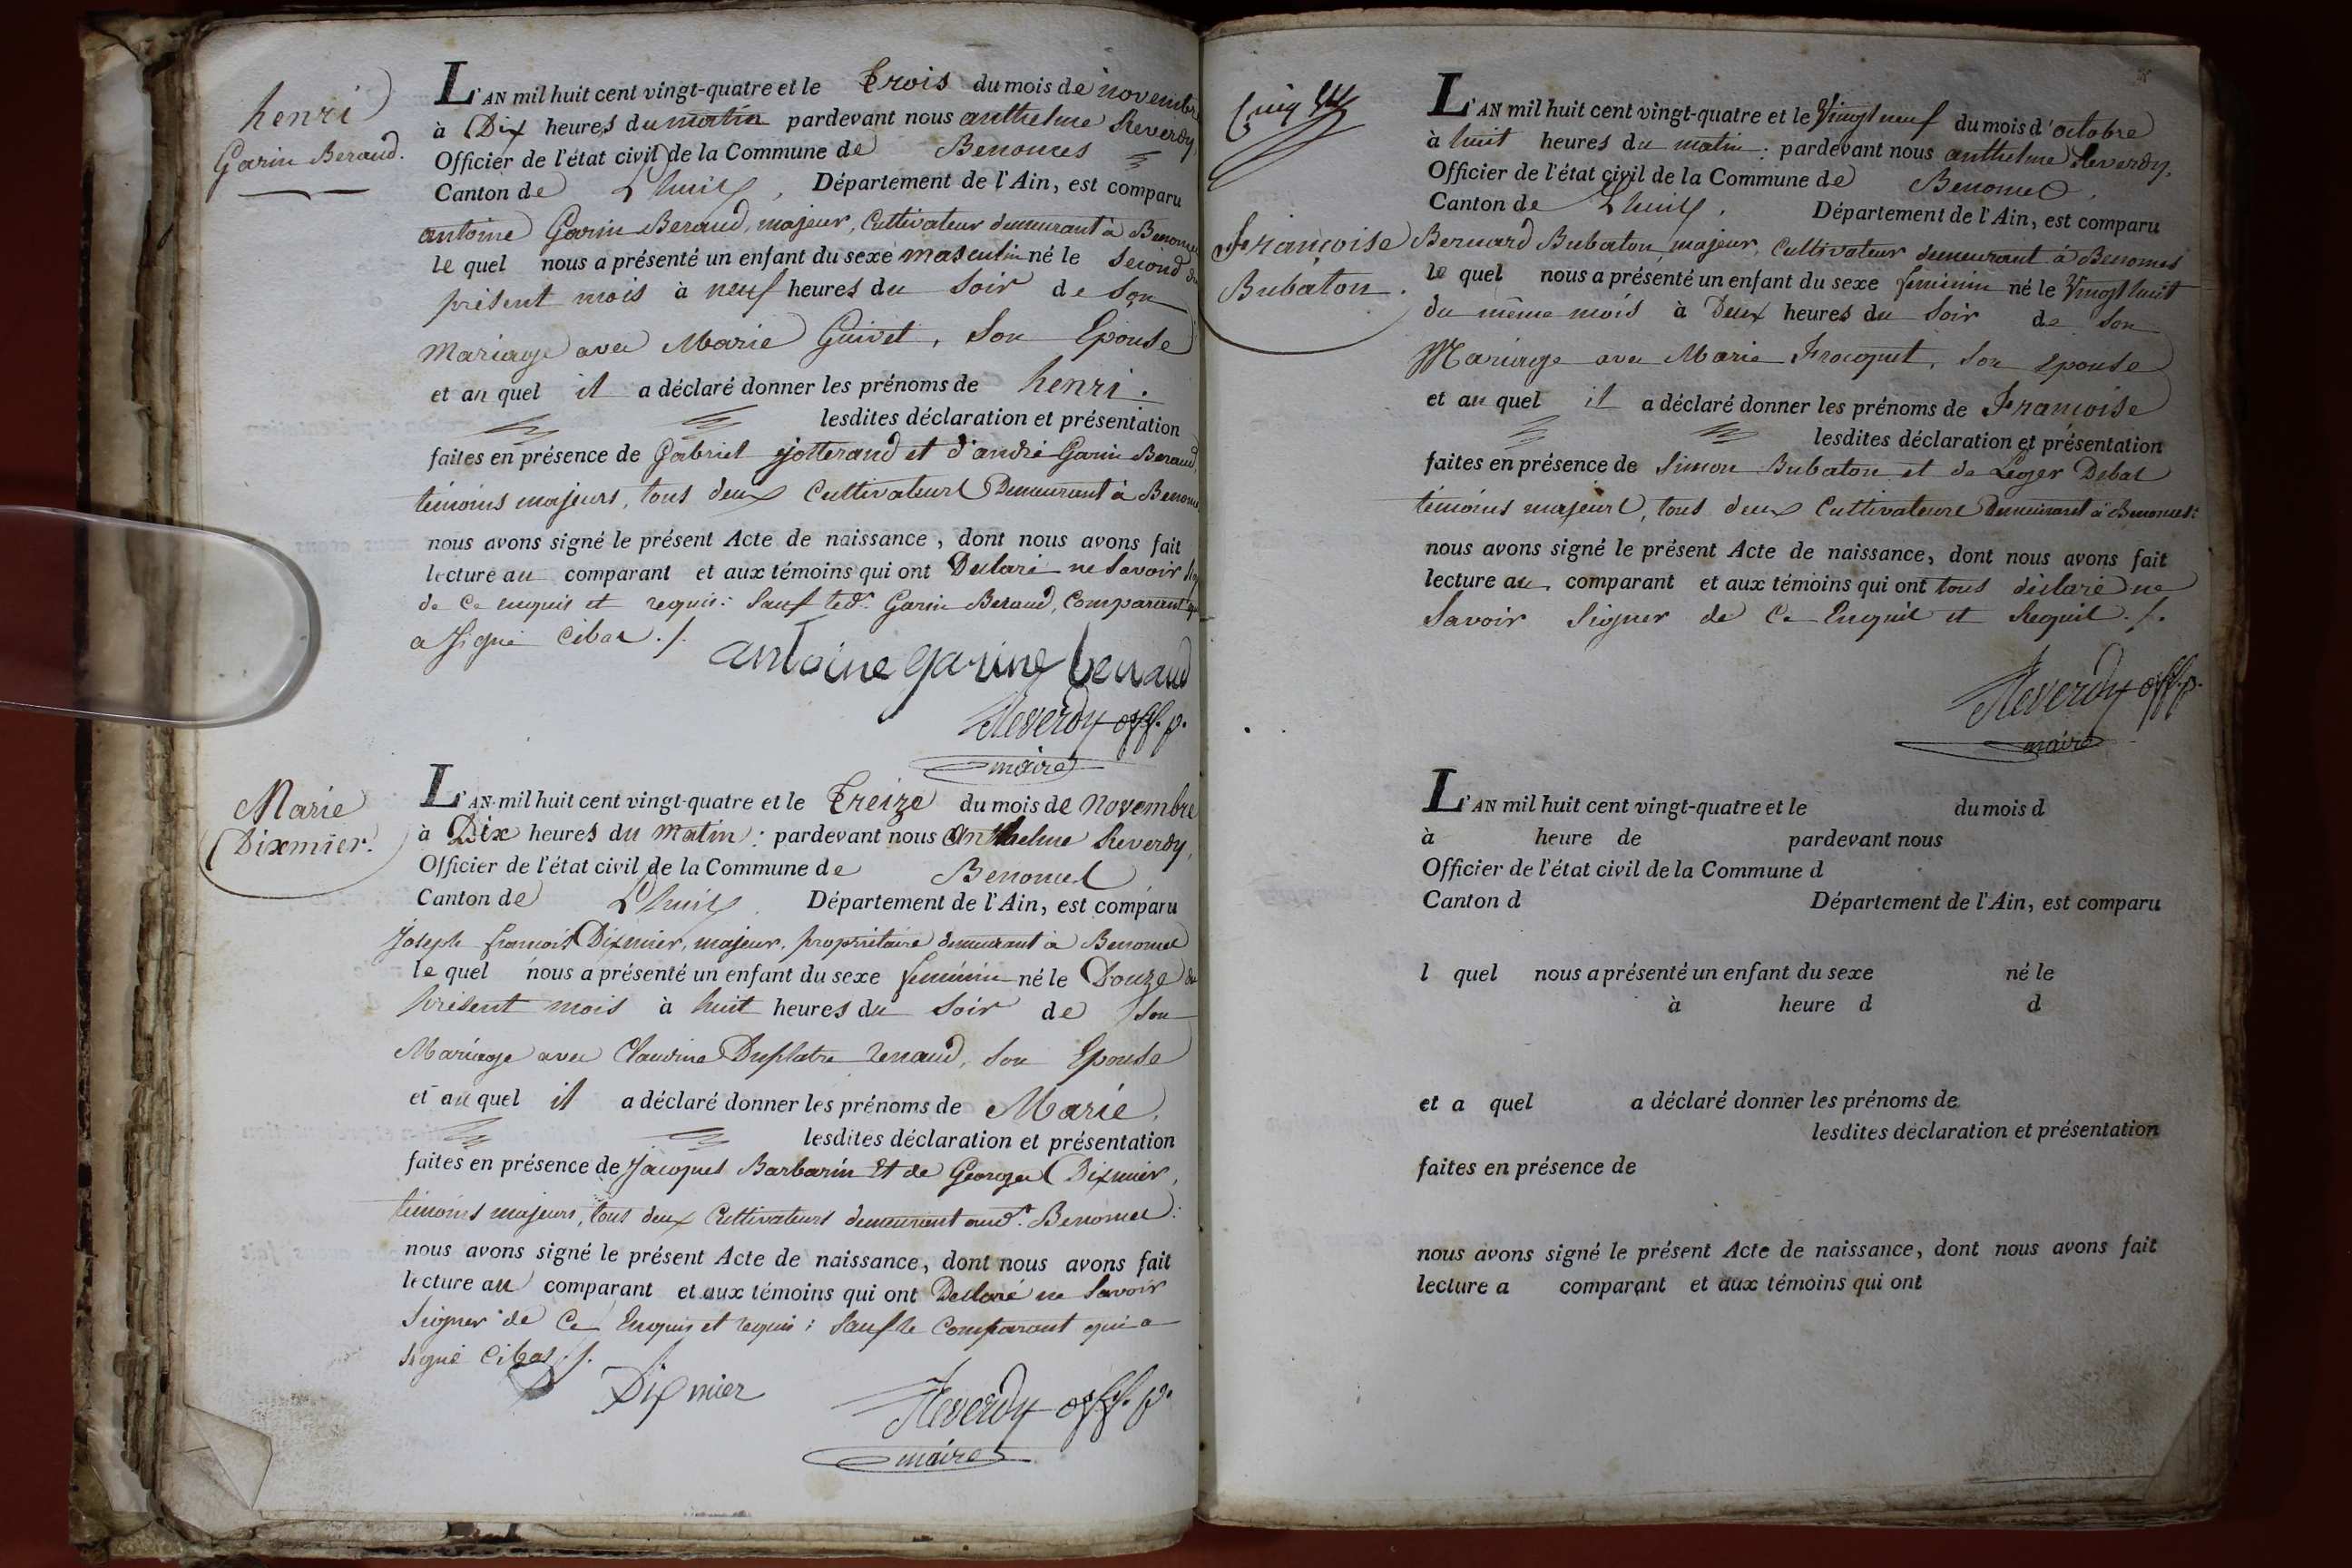 henri
Garin Beraud.
L'AN mil huit cent vingt-quatre et le Trois du mois de novembre
à Dix heures du matin pardevant nous anthelme Reverdy,
Officier de l'état civil de la Commune de Benonces
Canton de Lhuis, Département de l'Ain, est comparu
antoine Garin Beraud, majeur, Cultivateur demeurant à Benonces
le quel nous a présenté un enfant du sexe masculin né le second du
présent mois à neuf heures du soir de son
Mariage avec Marie Guivet, son Epouse
et au quel il a déclaré donner les prénoms de henri.
lesdites déclaration et présentation
faites en présence de Gabriel Jotterand et d'andré Garin Beraud,
témoins majeurs, tous deux Cultivateurs Demeurant à Benonces
nous avons signé le présent Acte de naissance, dont nous avons fait
lecture au comparant et aux témoins qui ont Déclaré ne savoir
de ce enquis et requis: sauf led. Garin Beraud, Comparant qui
a signé cibas ./.
antoine garin beraud
Reverdy off. p.
maire
Marie
Dixmier.
L'AN mil huit cent vingt-quatre et le Treize du mois de Novembre
à Dix heures du matin: pardevant nous Anthelme Reverdy,
Officier de l'état civil de la Commune de Benonces
Canton de Lhuis, Département de l'Ain, est comparu
Joseph françois Dixmier, majeur, propriétaire demeurant à Benonces
le quel nous a présenté un enfant du sexe féminin né le Douze du
présent mois à huit heures du soir de son
Mariage avec Claudine Duplatre Renaud, son Epouse
et au quel il a déclaré donner les prénoms de Marie.
lesdites déclaration et présentation
faites en présence de Jacques Barbarin Et de Georges Dixmier,
témoins majeurs, tous deux Cultivateurs demeurant aud. Benonces:
nous avons signé le présent Acte de naissance, dont nous avons fait
lecture au comparant et aux témoins qui ont Déclaré ne Savoir
signer de Ce Enquis et requis: sauf le Comparant qui a
signé cibas ./.
Dixmier
Reverdy off. p.
maire
Françoise
Bubaton.
L'AN mil huit cent vingt-quatre et le Vingt neuf du mois d'octobre
à huit heures du matin: pardevant nous anthelme Reverdy,
Officier de l'état civil de la Commune de Benonces,
Canton de Lhuis, Département de l'Ain, est comparu
Bernard Bubaton, majeur, Cultivateur demeurant à Benonces
le quel nous a présenté un enfant du sexe féminin né le Vingt huit
du même mois à Deux heures du soir de son
Mariage avec Marie Fracquet, son épouse
et au quel il a déclaré donner les prénoms de Françoise
lesdites déclaration et présentation
faites en présence de Simon Bubaton et de Léger Debat
témoins majeurs, tous deux Cultivateurs Demeurant à Benonces:
nous avons signé le présent Acte de naissance, dont nous avons fait
lecture au comparant et aux témoins qui ont tous déclaré ne
savoir signer de Ce Enquis et Requis ./.
Reverdy off. p.
maire
L'AN mil huit cent vingt-quatre et le du mois d
à heure de pardevant nous
Officier de l'état civil de la Commune d
Canton d Département de l'Ain, est comparu
l quel nous a présenté un enfant du sexe né le
à heure d d
et a quel a déclaré donner les prénoms de
lesdites déclaration et présentation
faites en présence de
nous avons signé le présent Acte de naissance, dont nous avons fait
lecture a comparant et aux témoins qui ont